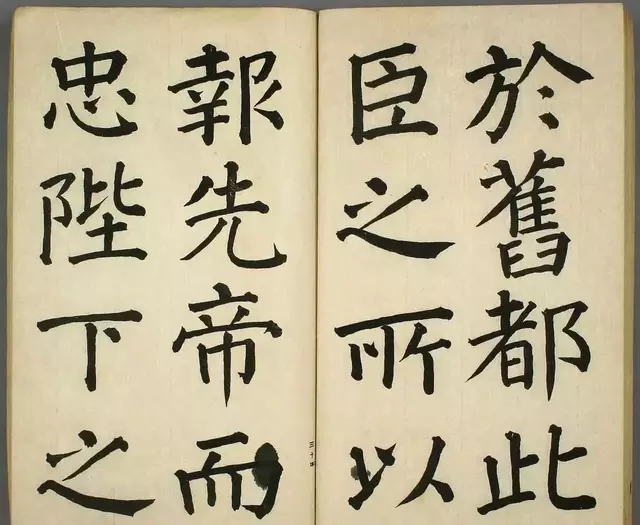 於舊都此
臣之所以
報先帝而
忠陛下之
三十四